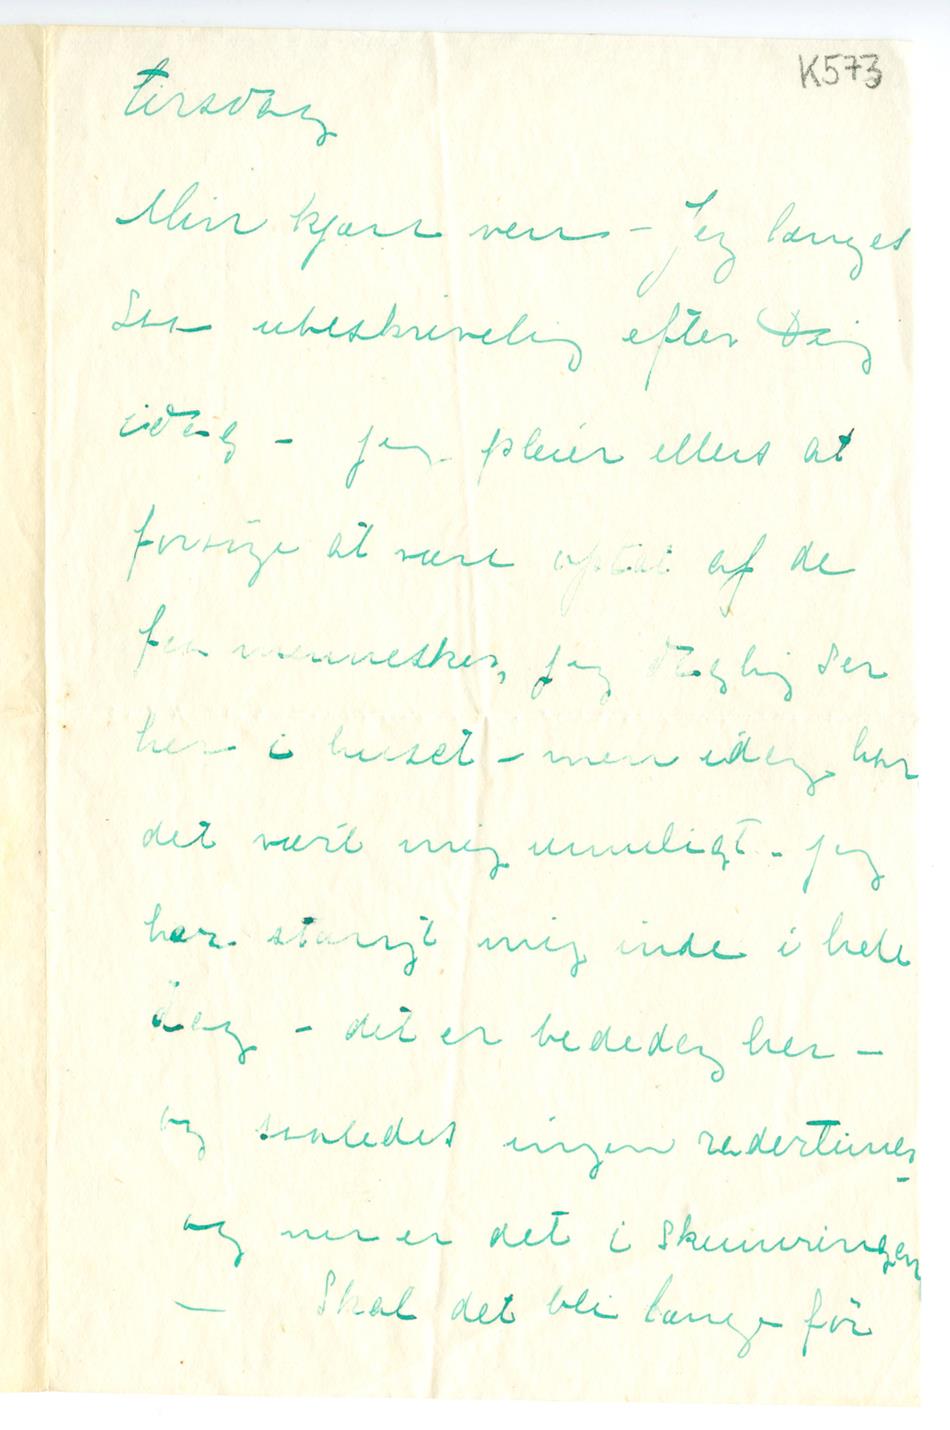 K573
tirsdag
Min kjære ven – Jeg længes
saa ubeskrivelig efter Dig
idag – jeg pleier ellers at
forsöge at være optat af de
faa mennesker, jeg daglig ser
her i huset – men idag har
det vært mig umuligt – jeg
har stængt mig inde i hele
dag – det er bededag her –
og saaledes ingen
og nu er det i skumringen
– Skal det bli længe för